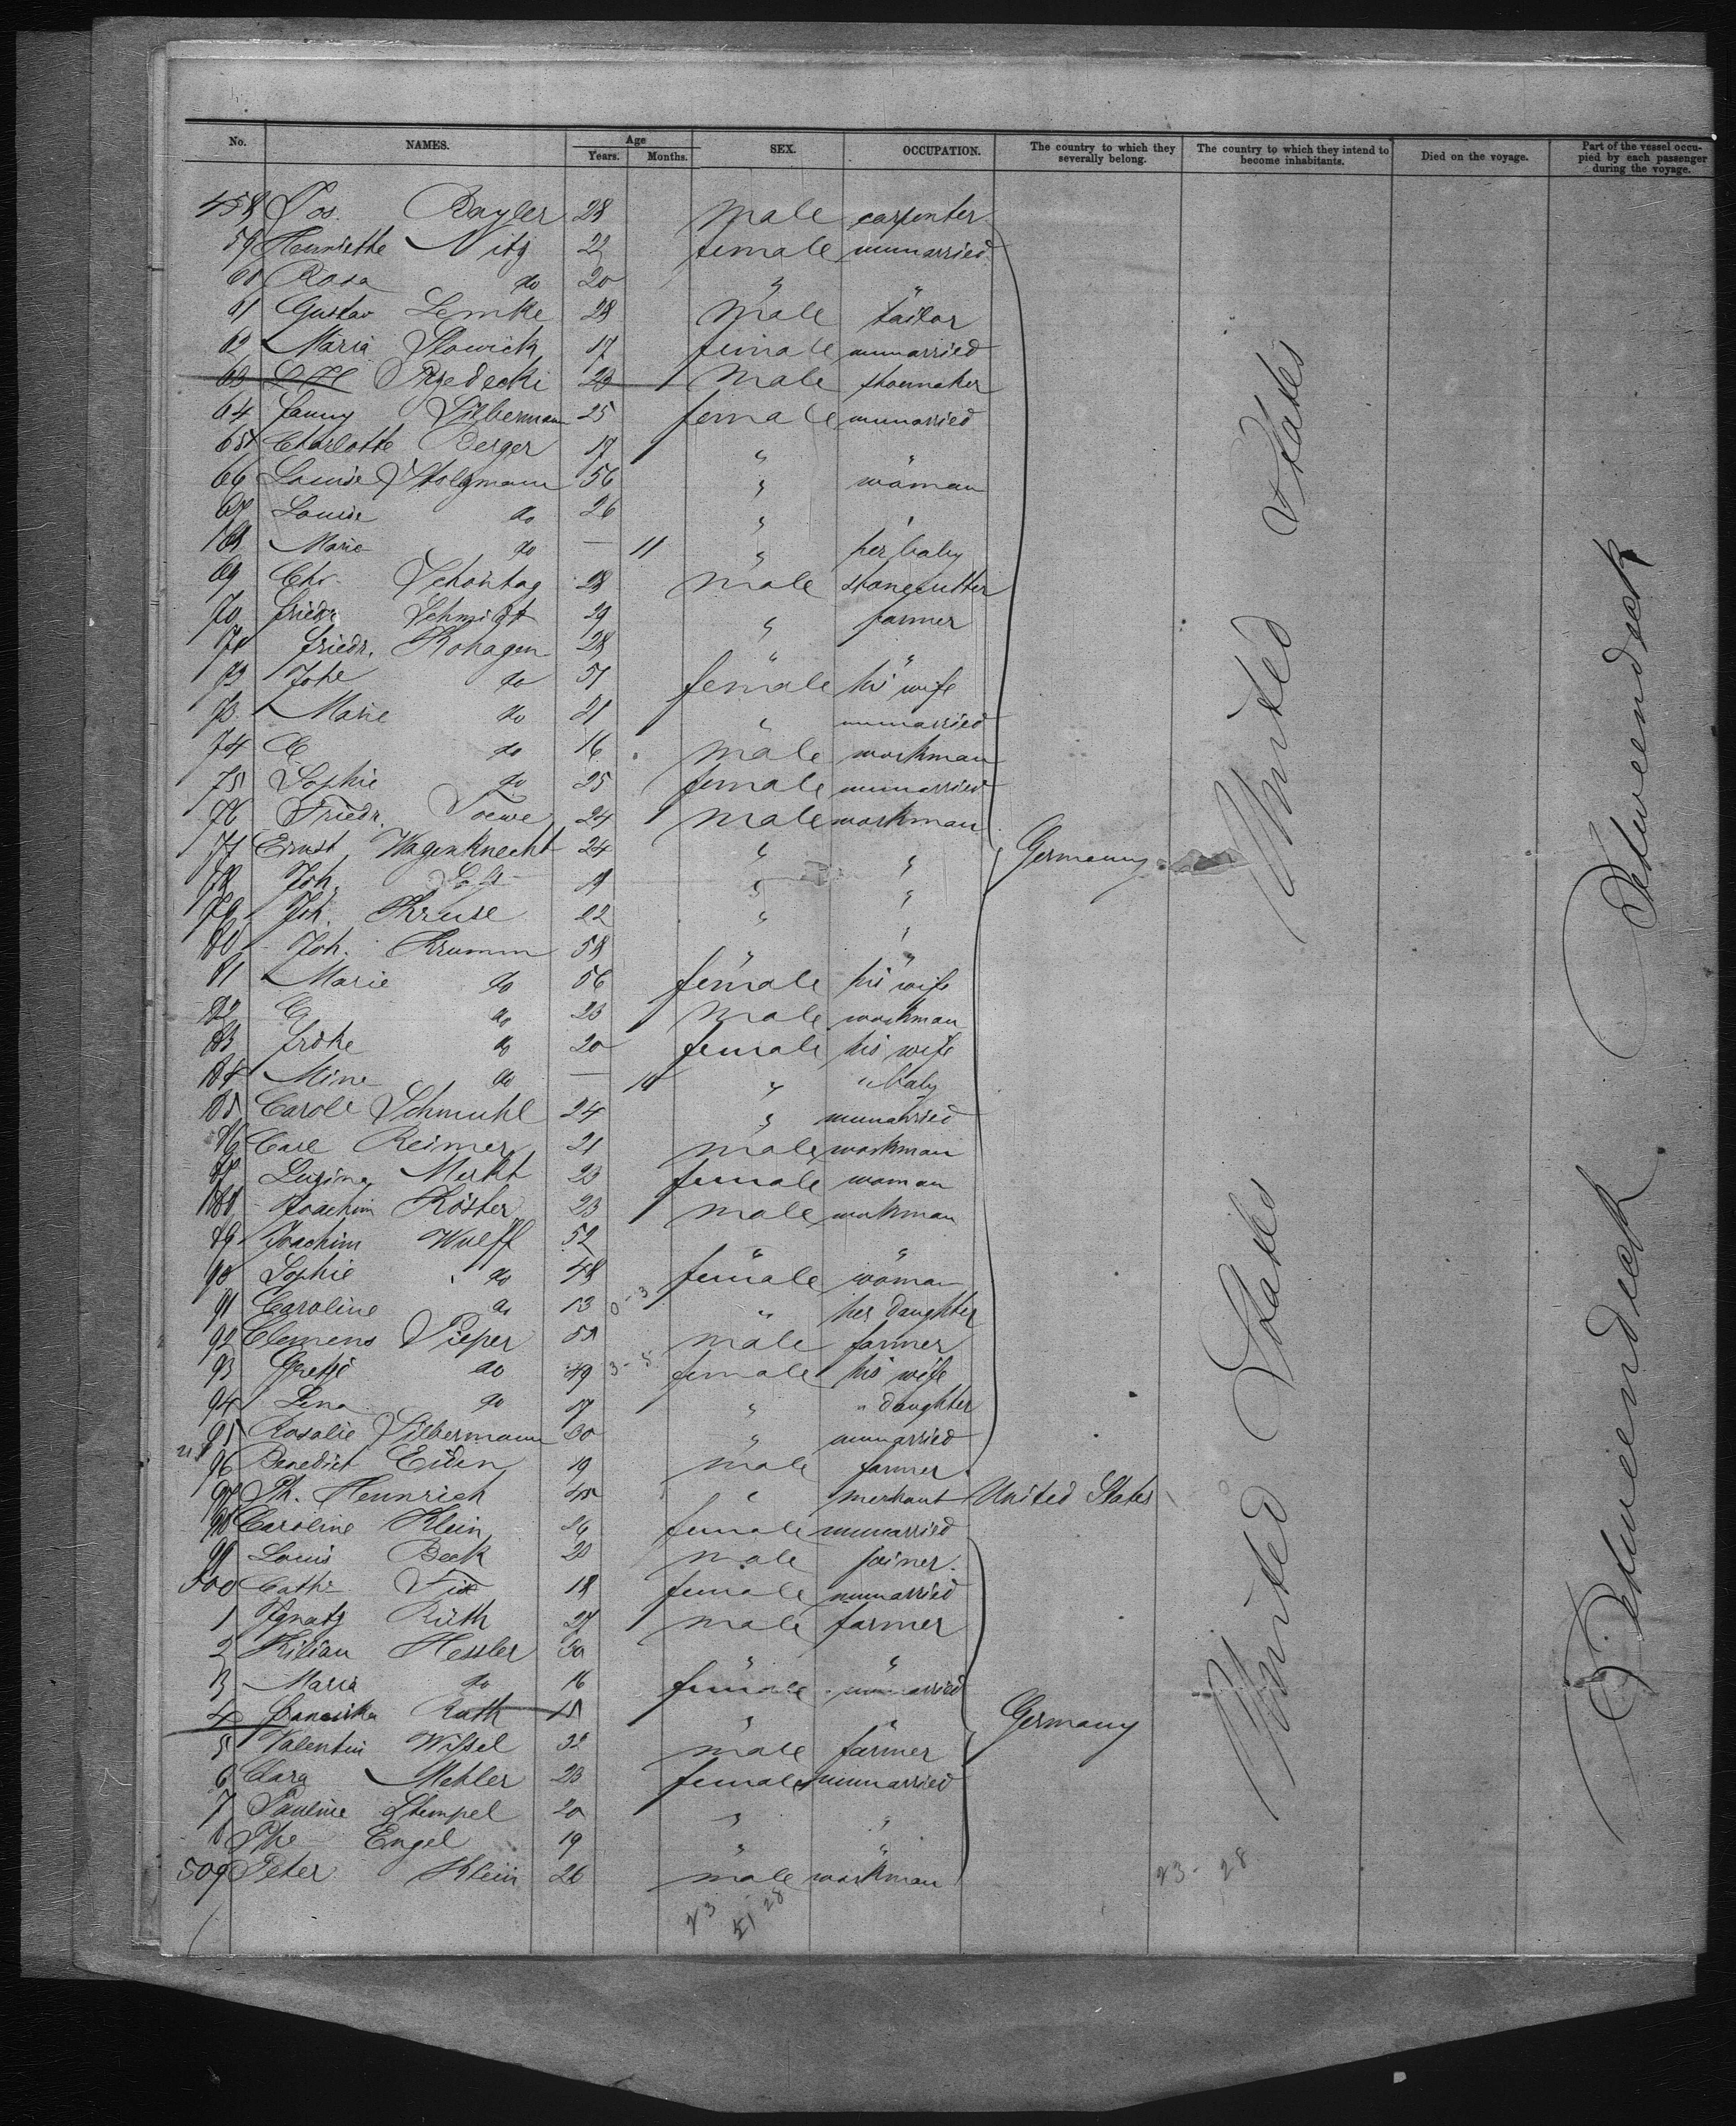 No. NAMES. Age Years. Months. SEX. OCCUPATION. The country to which they severally belong. The country to which they intend to become inhabitants. Died on the voyage. Part of the vessel occupied by each passenger during the voyage.
458 Jos. Bayler 28 male carpenter
59 Henriette Nitz 22 female unmarried
60 Rosa do 20 " "
61 Gustav Lemke 28 male tailor
62 Maria Slowick 17 female unmarried
63 Przedecki 23 male shoemaker
64 Fanny Silbermann 25 female unmarried
65 Charlotte Berger 17 " "
66 Louise Stolzmann 56 " woman
67 Louise do 26 " "
68 Marie do — 11 " her baby
69 Chr. Schöntag 28 male stonecutter
70 Friedr. Schmidt 29 " farmer
71 Friedr. Rohagen 28 " "
72 Joh'e do 51 female his wife
73 Marie do 21 " unmarried
74 C do 16 male workman
75 Sophie do 25 female unmarried
76 Friedr. Toewe 24 male workman
77 Ernst Wagenknecht 24 " " Germany United States
78 Joh. 19 " "
79 Joh. Kruse 22 " "
80 Joh. Krumm 58 " "
81 Marie do 56 female his wife
82 C do 23 male workman
83 do 20 female his wife
84 Mine do — 10 " " baby
85 Carole Schmuhl 24 " unmarried
86 Carl Reimer 21 male workman
87 Merkt 23 female woman
88 Joachim Köster 23 male workman
89 Joachim Wulff 52 " "
90 Sophie do 48 female woman
91 Caroline do 13 0-3 " her daughter
92 Clemens Pieper 51 male farmer
93 Gretje do 49 3-5 female his wife
94 Lena do 17 " " daughter
95 Rosalie Silbermann 30 " unmarried
96 Benedict Eiden 19 male farmer
97 Ph. Hennrich 45 " merchant United States
98 Caroline Klein 26 female unmarried
99 Louis Beck 20 male joiner
500 Cath. Fix 18 female unmarried
1 Ignatz Rüth 27 male farmer
2 Kilian Hessler 30 " "
3 Maria do 16 female unmarried
4 Franciska Ruth 18 " " Germany United States Betweendeck
5 Valentin Wissel 32 male farmer
6 Clara Mehler 23 female unmarried
7 Pauline Stempel 20 " "
8 Phe Engel 19 " "
509 Peter Klein 26 male workman
23 - 28
23 51 28
Betweendeck